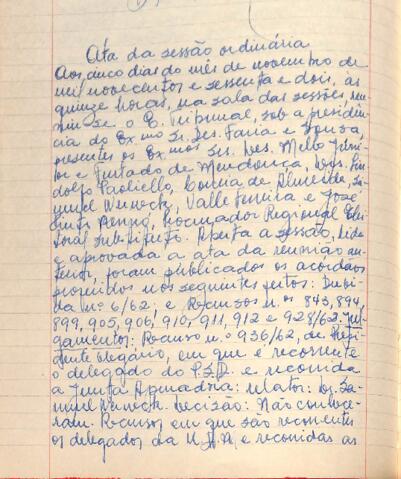 Ata da sessão ordinária
Aos cinco dias do mês de novembro de
mil novecentos e sessenta e dois, às
quinze horas, na sala das sessões, reu-
niu-se o E. Tribunal, sob a presidên-
cia do Ex.mo Sr. Des. Faria e Souza,
presentes os Ex.mos Srs. Des. Mello Júni-
or e Furtado de Mendonça, Drs. Lin-
dolfo Paoliello, Correia de Almeida, Sa-
muel Werneck, Valle Ferreira e José
Pinto Renno, Procurador Regional Elei-
toral substituto. Aberta a sessão, lida
e aprovada a ata da reunião an-
terior, foram publicados os acordãos
proferidos nos seguintes feitos:
n.º 6/62; e Recursos n.os 843, 894,
899, 905, 906, 910, 911, 912 e 928/62. Jul-
gamentos: Recurso n.º 936/62, de Presi-
dente Olegário, em que é recorrente
o delegado do P.S.D. e recorrida
a Junta Apuradora: relator: Dr. Sa-
muel Werneck. Decisão: Não conhece-
ram. Recursos em que são recorrentes
os delegados da U.D.N. e recorridas as